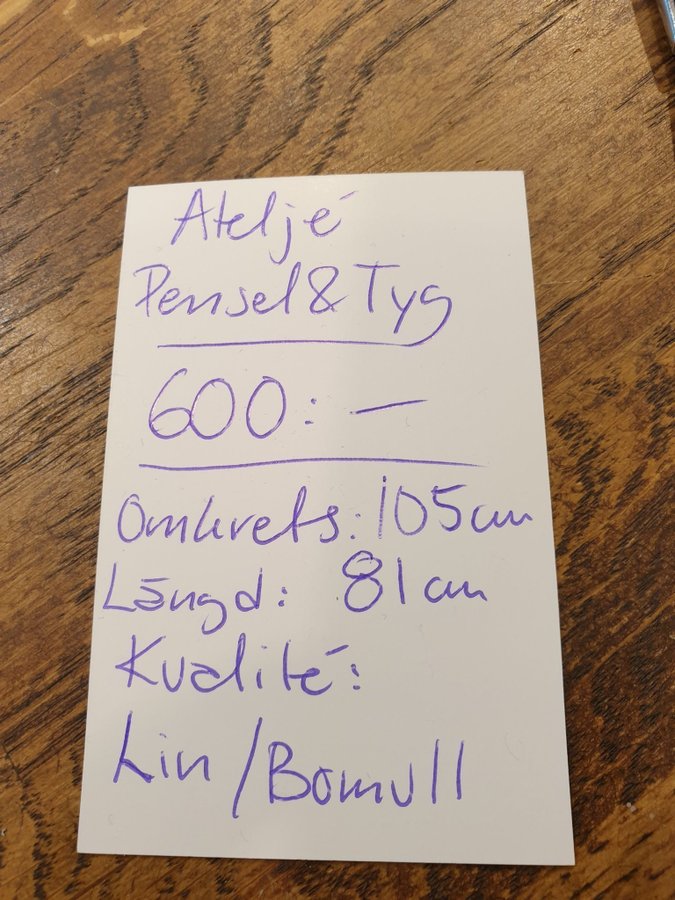 Ateljé
Pensel & Tyg
600:-
Omkrets: 105cm
Längd: 81cm
Kvalité:
Lin/Bomull